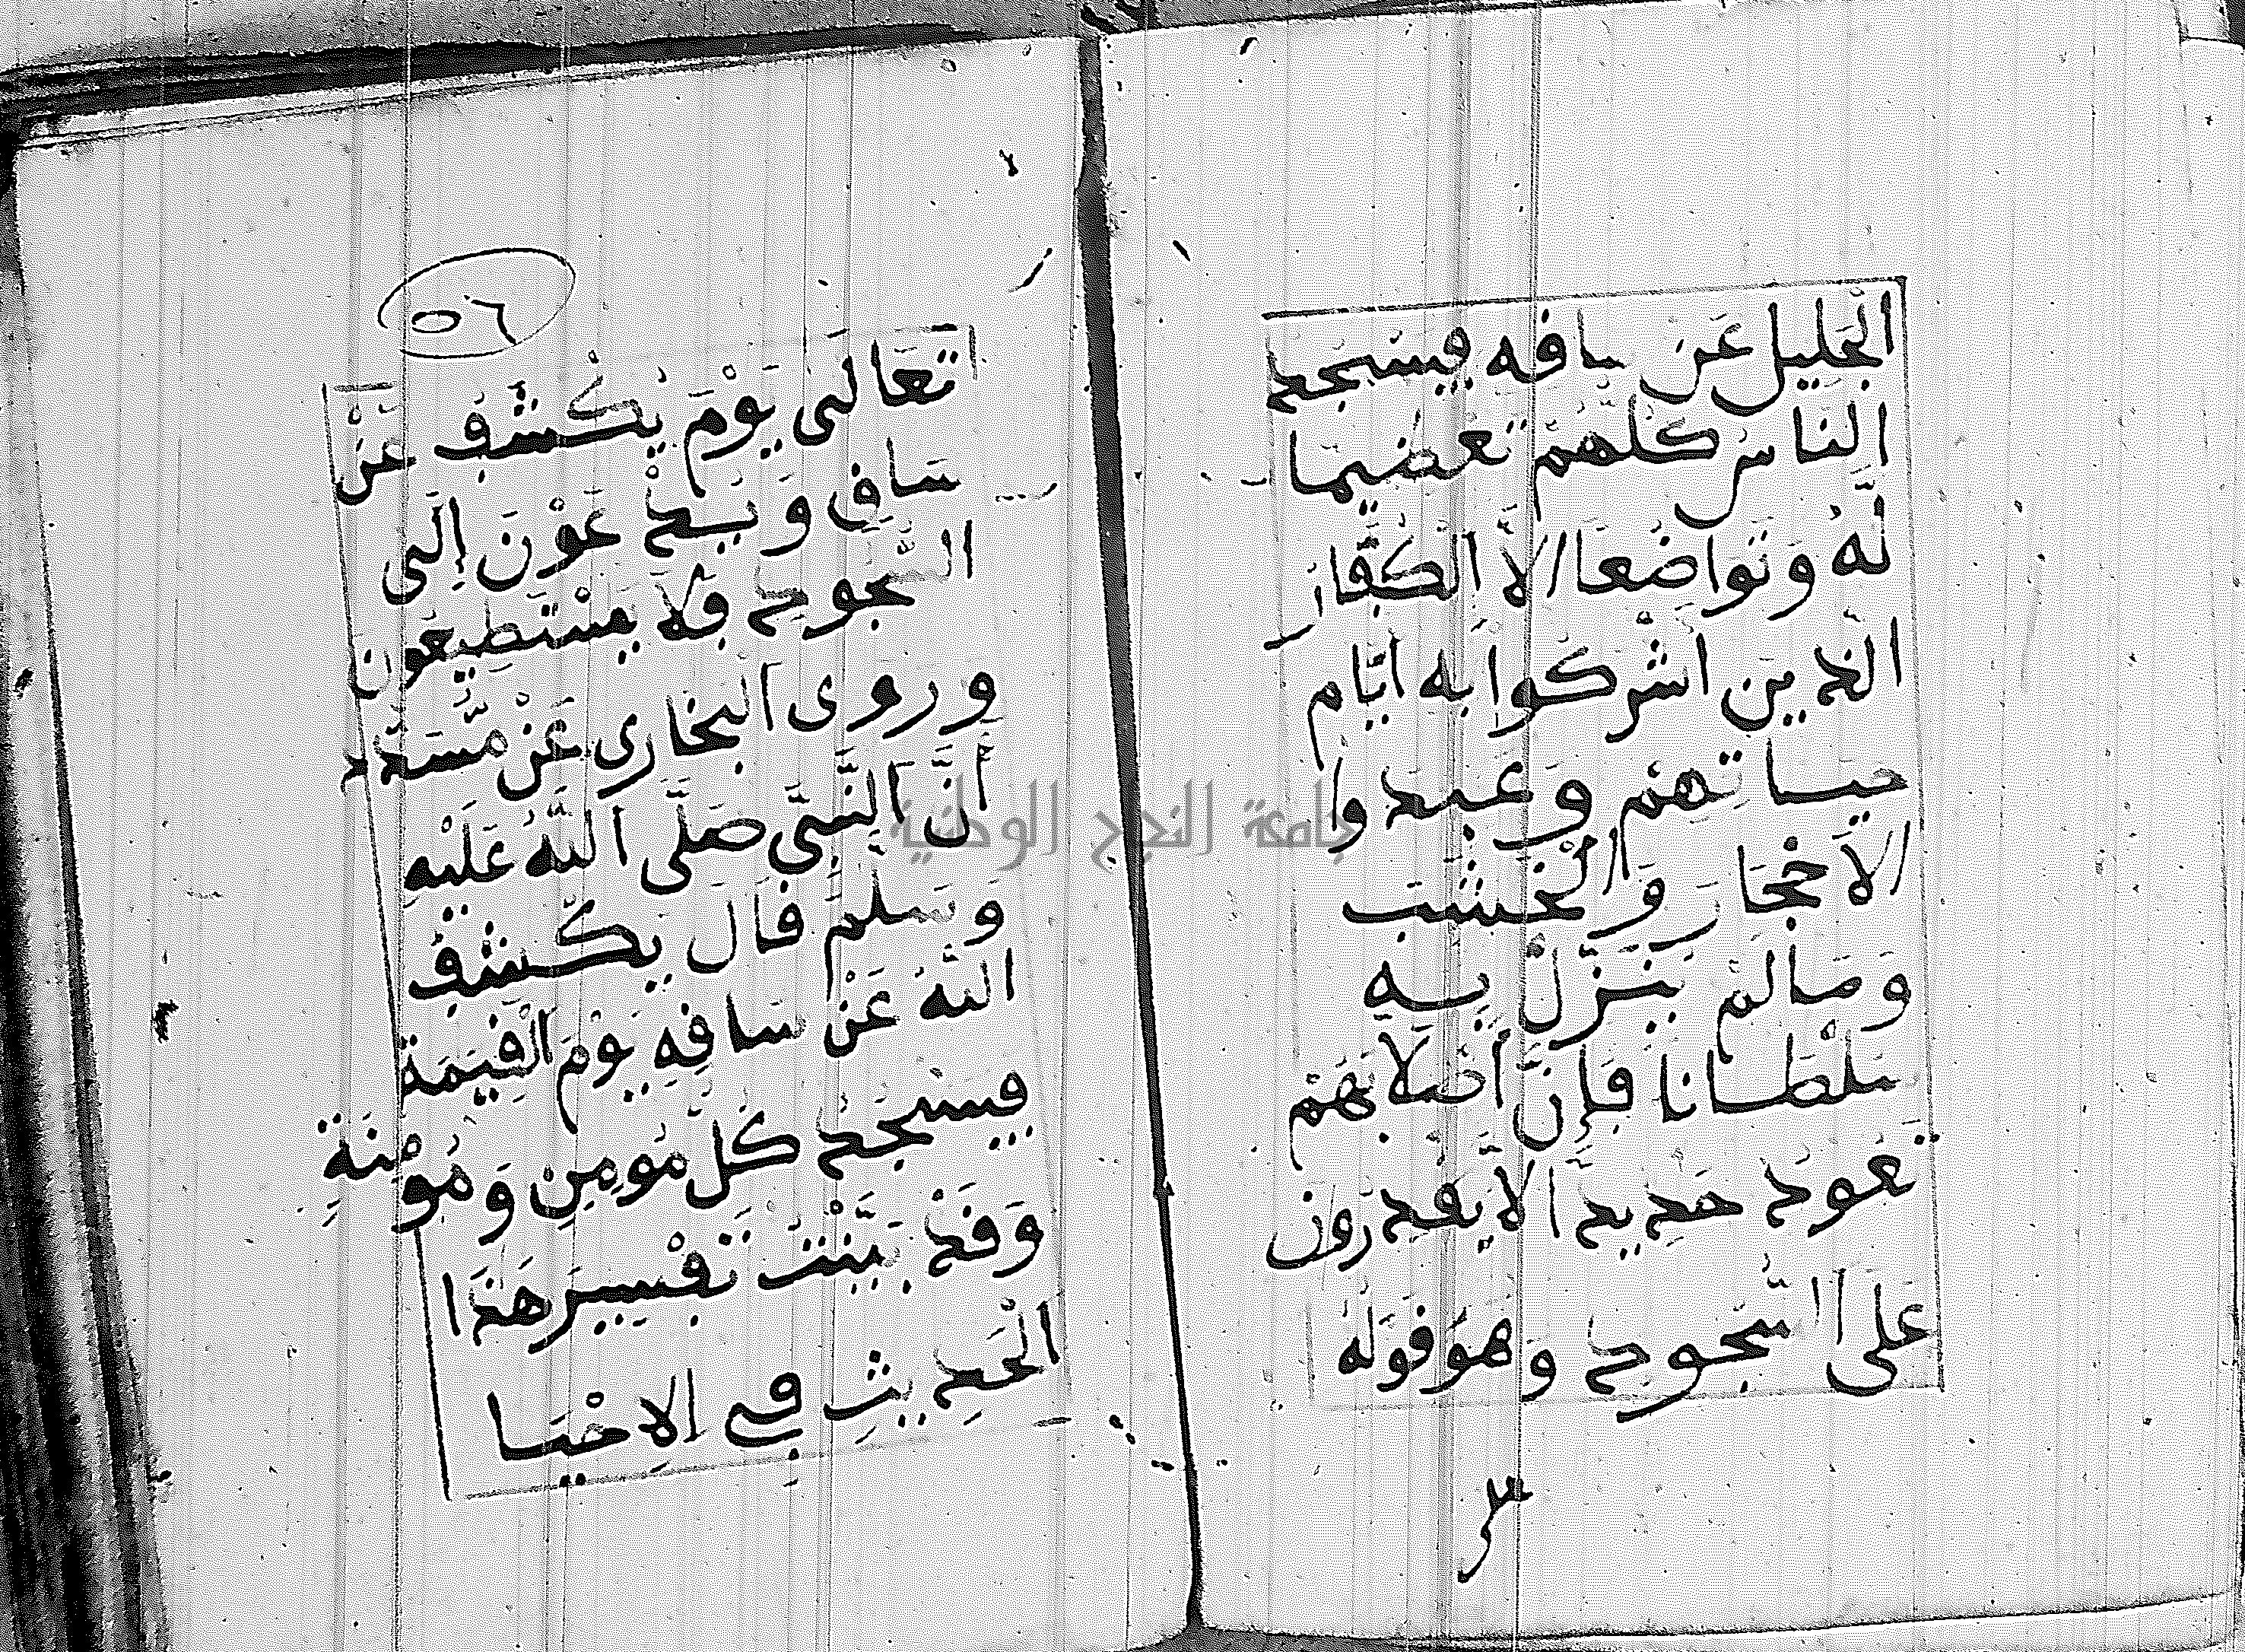 الْجَلِيلُ عَن سافه فيسْجد
النَّاسُ كُلُّهُمْ تعْضيما
لَّهُ وَتَوَاضُعًا الاَّ الْكُفَّارُ
الذين اشْركوا به ايّام
حيا تِهِمْ وَعَبدوا
الاحْجَارَ وَالْخشَبَ
وَمَا لَمْ يُنَزِّلْ بِهِ
سلْطَانا فَإِنَّ أصْلابَهُمْ
تعُود حديدًا لا يقدرون
عَلى السُّجُودِ وهُوَ قولهُ
٥٦
تَعَالَى يَوْمَ يُكْشَفُ عَنْ
سَافٍ وَيُدْعَوْنَ إِلَى
السُّجودِ فلا يسْتَطِيعُون
وروى البخارى عَنْ مُّسنَد
أَنَّ النَّبِىَّ صَلَّى اللَّهُ عَلَيْهِ
وَسَلَّمَ قَالَ يكْشفُ
اللهُ عَنْ سَافِهِ يَوْمَ الْقِيَمَةِ
فيسْجُدُ كُلُّ مُومِنٍ وَمُومِنَةٍ
وَقَدْ بَيَّنْتُ تَفْسِيرَ هَذَا
الْحَدِيثِ فِي الاِحْيَا
جامعة النجاح الوطنية